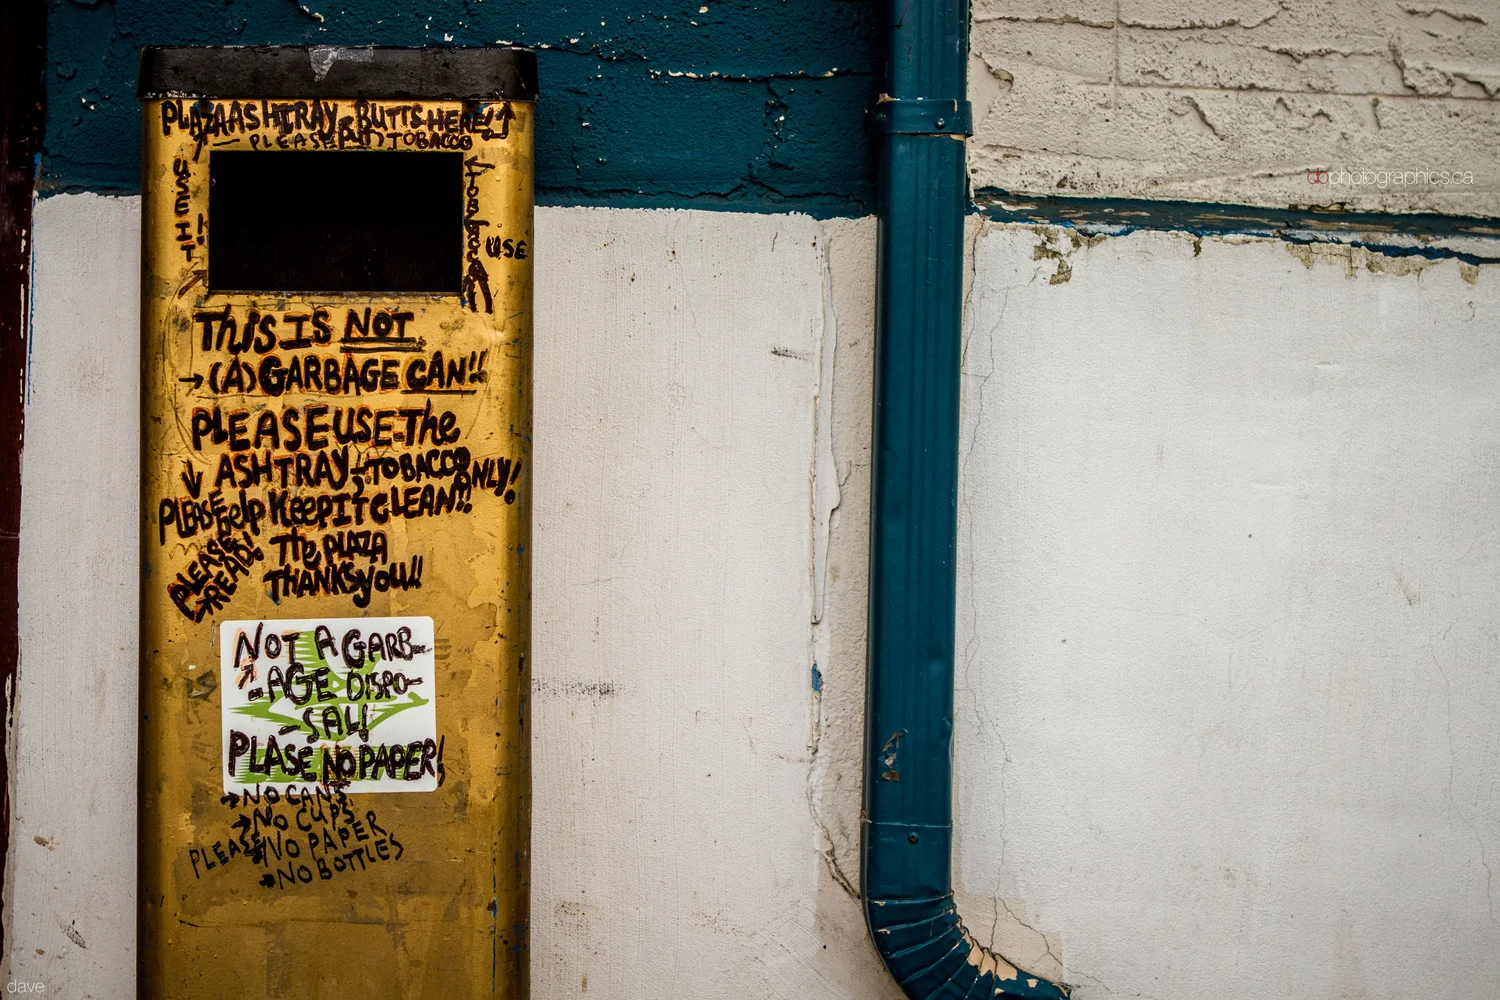 PLAZA ASHTRAY - BUTTS HERE!!
PLEASE PUT TOBACCO
USE IT!!
TOBACCO
USE
THIS IS NOT
→ (A) GARBAGE CAN!!
PLEASE USE The
ASHTRAY, TOBACCO ONLY!
PLEASE help KeepIT CLEAN!!
PLEASE READ!
The PLAZA
THANKS YOU!!
NOT A GARB-
-AGE DISPO-
-SAL!
PLASE NO PAPER!
→ NO CANS
→ NO CUPS
PLEASE NO PAPER
→ NO BOTTLES
dbphotographics.ca
dave